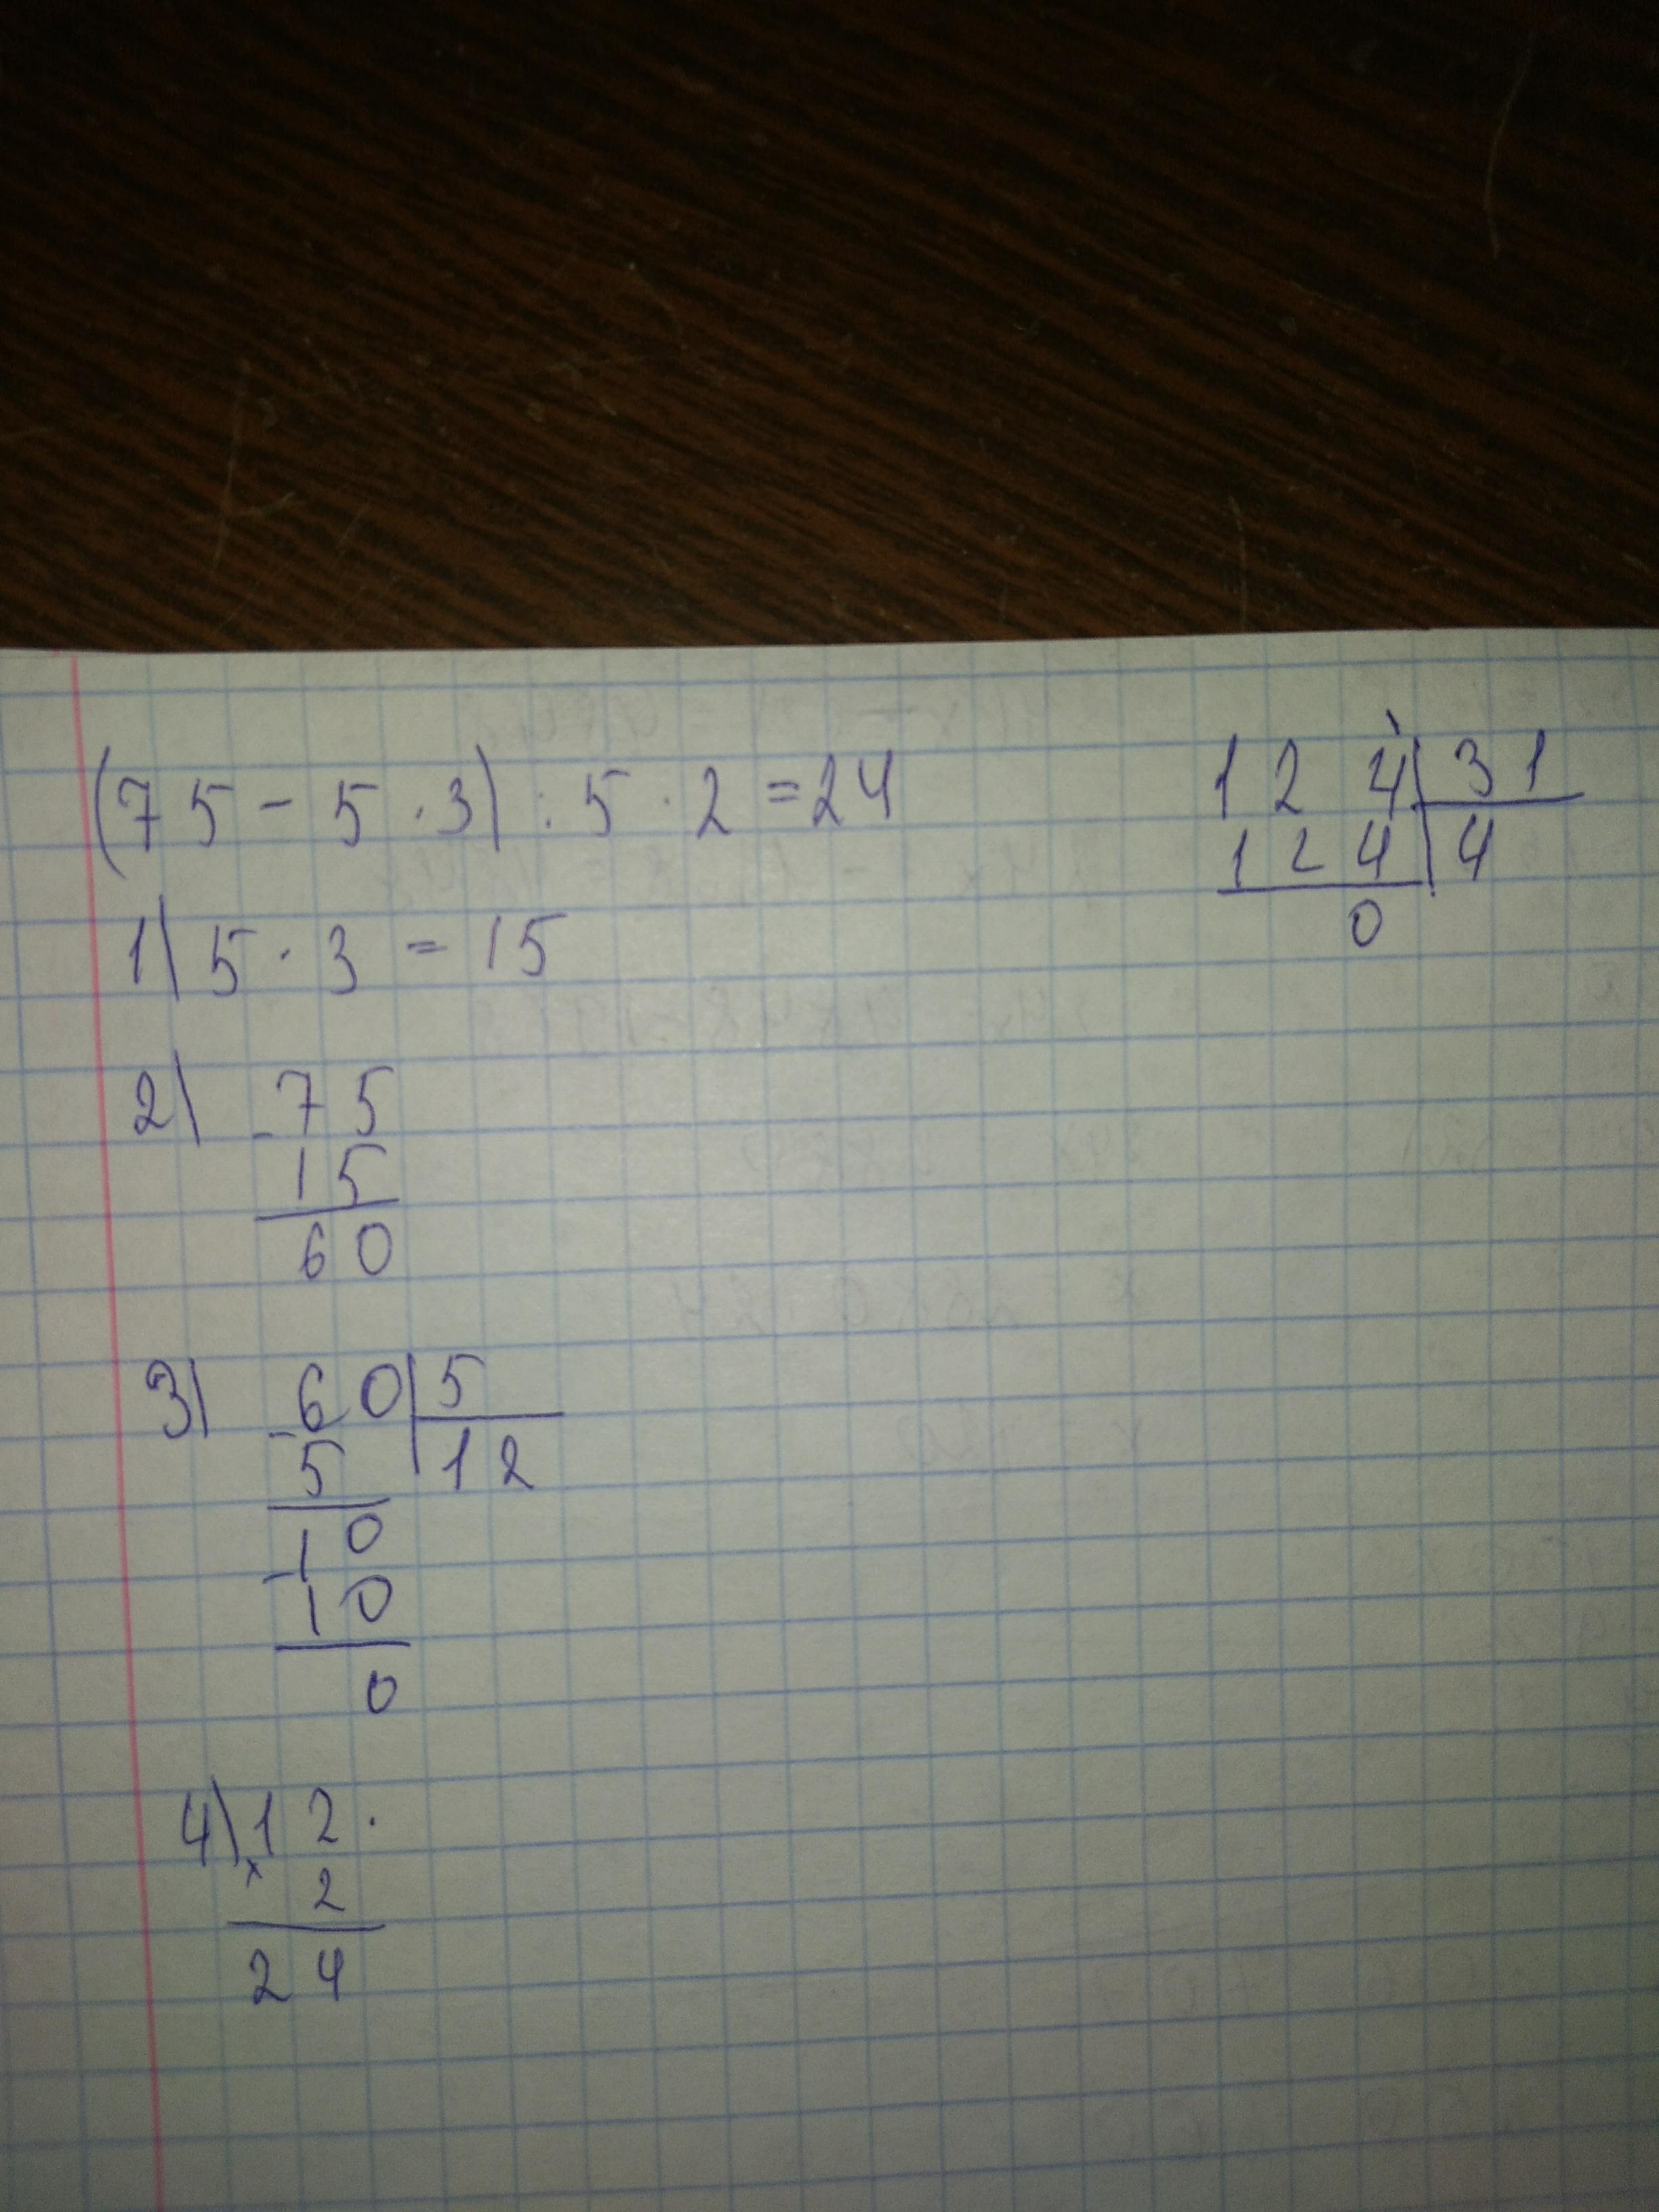 (75 - 5 · 3) : 5 · 2 = 24
1) 5 · 3 = 15
2) - 75
15
60
3) - 60 | 5
5 | 12
- 10
10
0
4) 12 ·
× 2
24
124 | 31
124 | 4
0